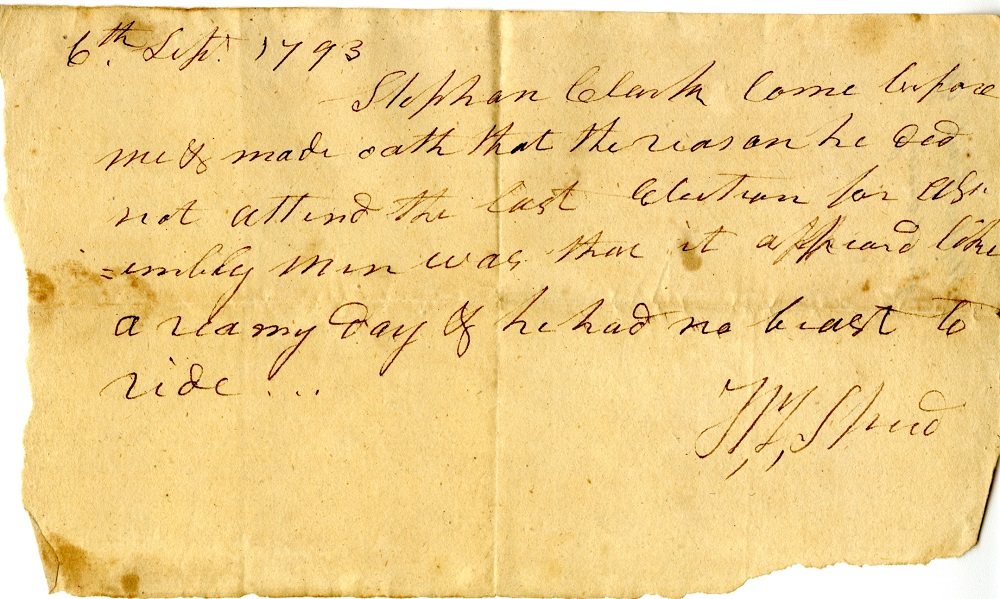 6th. Sept. 1793
Stephan Clark Come before
me & made oath that the reason he ded
not attend the last Election for ass
=embly men was that it appeard like
a reany day & he had no beast to
ride ...
Speed